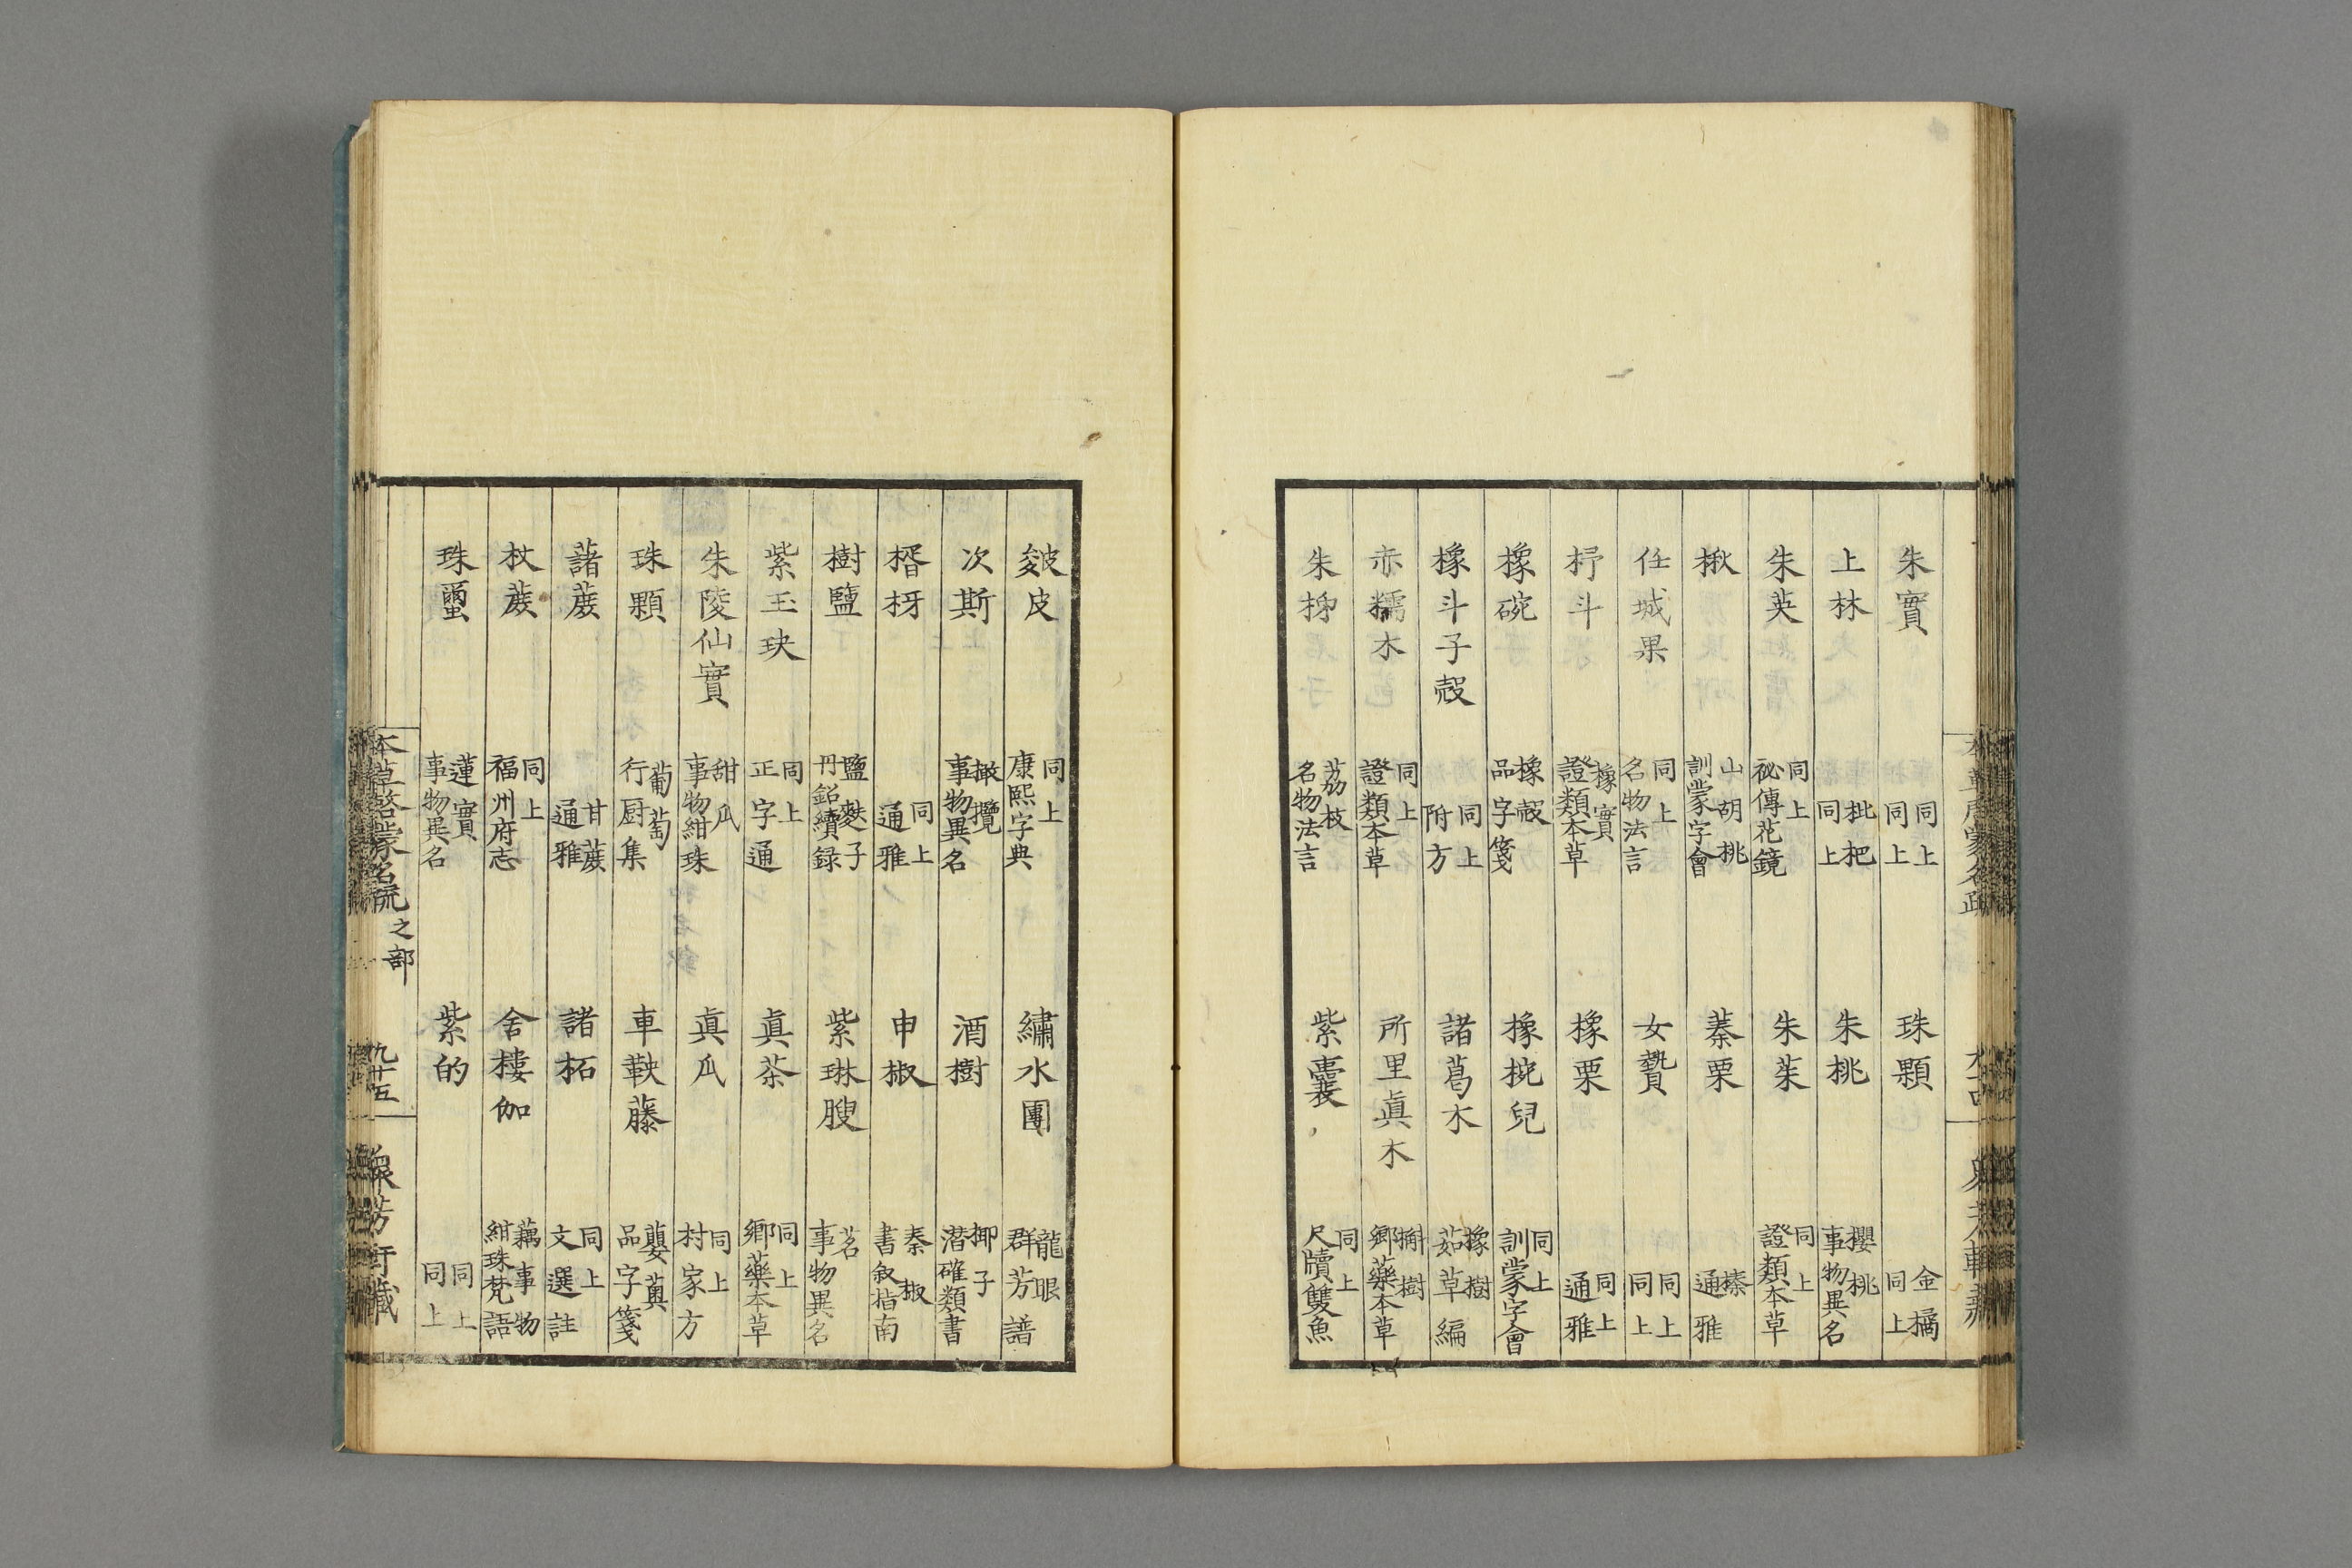 朱實 同上 同上 珠顆 金橘 同上
上林 枇杷 同上 朱桃 櫻桃 事物異名
朱英 同上 祕傳花鏡 朱茱 同上 證類本草
楸 山胡桃 訓蒙字會 蓁栗 榛 通雅
任城果 同上 名物法言 女贄 同上 同上
杼斗 橡實 證類本草 橡栗 同上 通雅
橡碗 橡殼 品字箋 橡椀兒 同上 訓蒙字會
橡斗子殼 同上 附方 諸葛木 橡樹 茹草編
赤糯木 同上 證類本草 所里眞木 槲樹 鄉藥本草
朱㧗 茘枝 名物法言 紫囊 同上 尺牘雙魚
皴皮 同上 康熙字典 繡水團 龍眼 群芳譜
次斯 橄欖 事物異名 酒樹 椰子 潜確類書
楈枒 同上 通雅 申椒 秦椒 書叙指南
樹鹽 鹽麩子 丹鉛續録 紫琳腴 茗 事物異名
紫玉玦 同上 正字通 眞茶 同上 鄉藥本草
朱陵仙實 甜瓜 事物紺珠 眞瓜 同上 村家方
珠顆 葡萄 行厨集 車鞅藤 蘡薁 品字箋
藷蔗 甘蔗 通雅 諸柘 同上 文選註
杖蔗 同上 福州府志 舍樓伽 藕 事物紺珠 梵語
珠蜜 蓮實 事物異名 紫的 同上 同上
本草啓蒙名疏 之部 九十五 衆芳軒藏